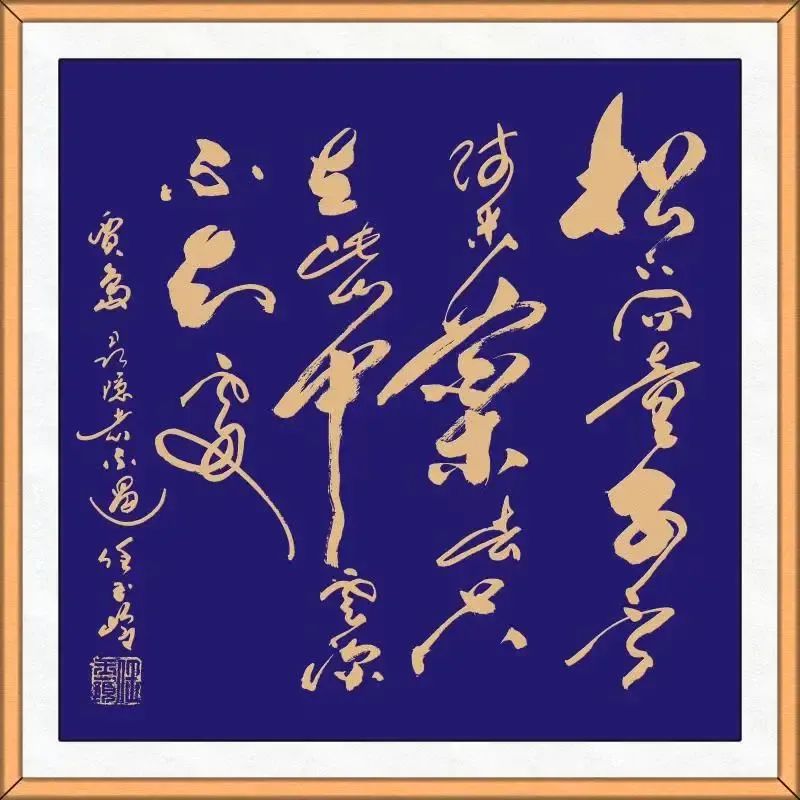 松下問童子言
師采藥去只
在此山中雲深
不知處
賈島尋隱者不遇 任玉嶺